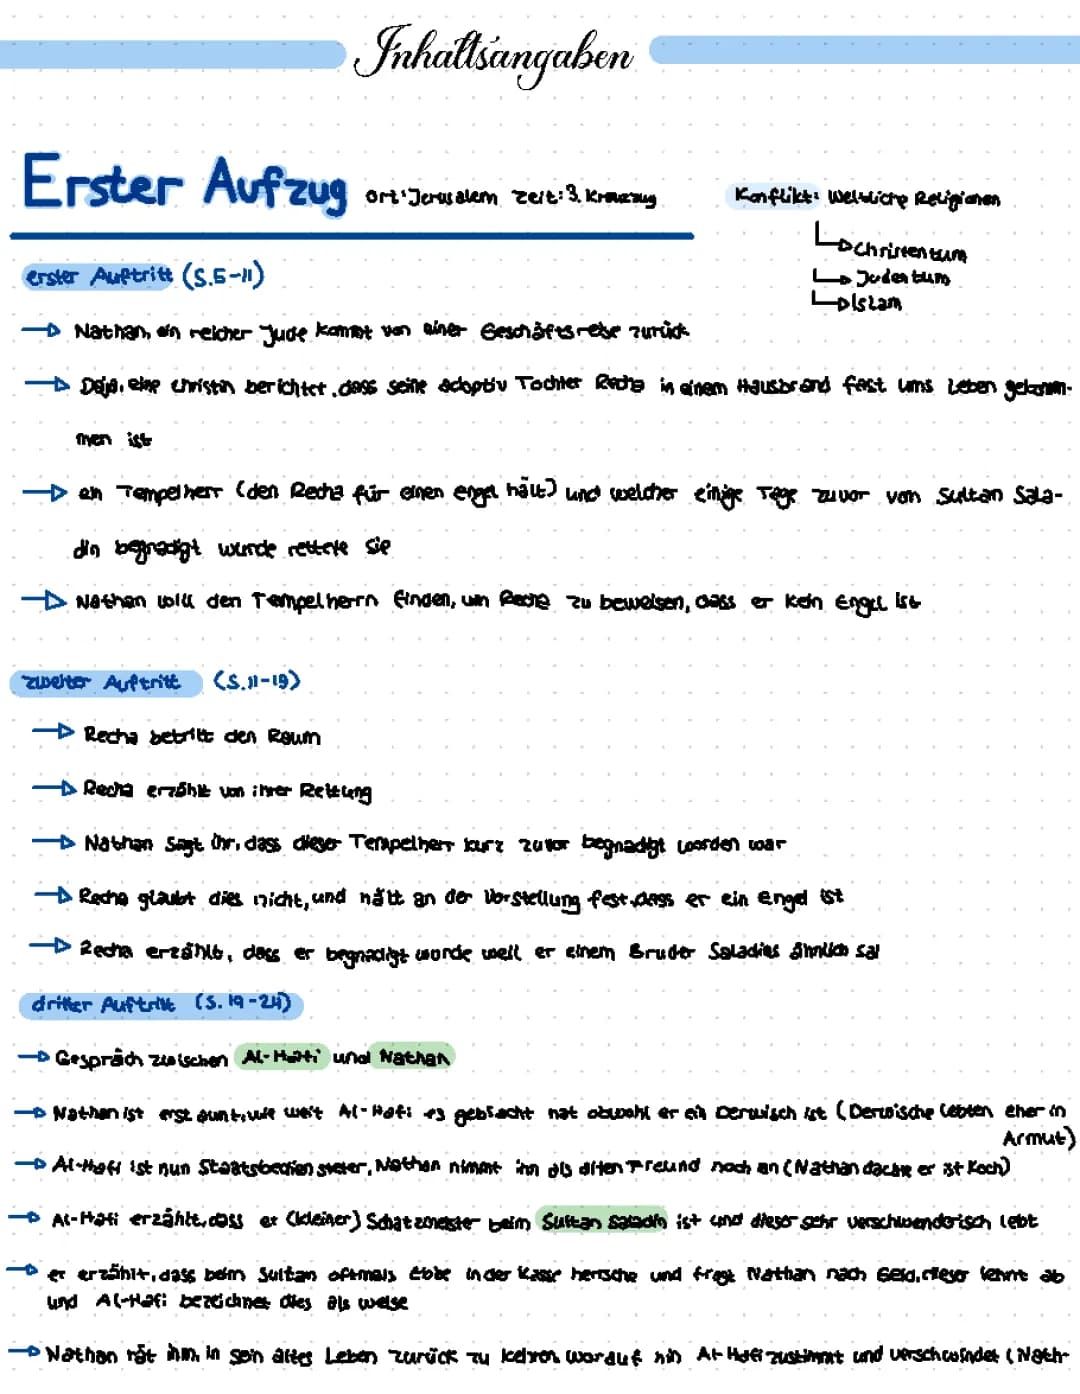 Inhaltsangaben
Erster Aufzug ort: Jerusalem Zeit: 3. Kreuzzug
Konflikt: Weltliche Religionen
Christentum
Judentum
Islam
erster Auftritt (S.5-11)
Nathan, ein reicher Jude kommt von einer Geschäftsreise zurück
Daja, eine Christin berichtet, dass seine adoptiv Tochter Recha in einem Hausbrand fast ums Leben gekom-
men ist
ein Tempelherr (den Recha für einen engel hält) und welcher einige Tage zuvor von Sultan Sala-
din begnadigt wurde rettete sie
Nathan will den Tempelherrn finden, um Recha zu beweisen, dass er kein Engel ist
zweiter Auftritt (S.11-19)
Recha betritt den Raum
Recha erzählt von ihrer Rettung
Nathan sagt ihr, dass dieser Tempelherr kurz zuvor begnadigt worden war
Recha glaubt dies nicht, und hält an der Vorstellung fest, dass er ein engel ist
Recha erzählt, dass er begnadigt worde weil er einem Bruder Saladins ähnlich sah
dritter Auftritt (S. 19-24)
Gespräch zwischen Al-Hafi und Nathan
Nathan ist erstaunt, wie weit Al-Hafi es gebracht hat obwohl er ein Derwisch ist (Derwische lebten eher in
Armut)
Al-Hafi ist nun Staatsbediensteter, Nathan nimmt ihn als alten Freund noch an (Nathan dachte er ist Koch)
Al-Hafi erzählt, dass er (kleiner) Schatzmeister beim Sultan Saladin ist und dieser sehr verschwenderisch lebt
er erzählt, dass beim Sultan oftmals Ebbe in der Kasse herrsche und fragt Nathan nach Geld, dieser lehnt ab
und Al-Hafi bezeichnet dies als weise
Nathan rät ihm, in sein altes Leben zurück zu kehren, worauf hin Al-Hafi zustimmt und verschwindet (Nath-